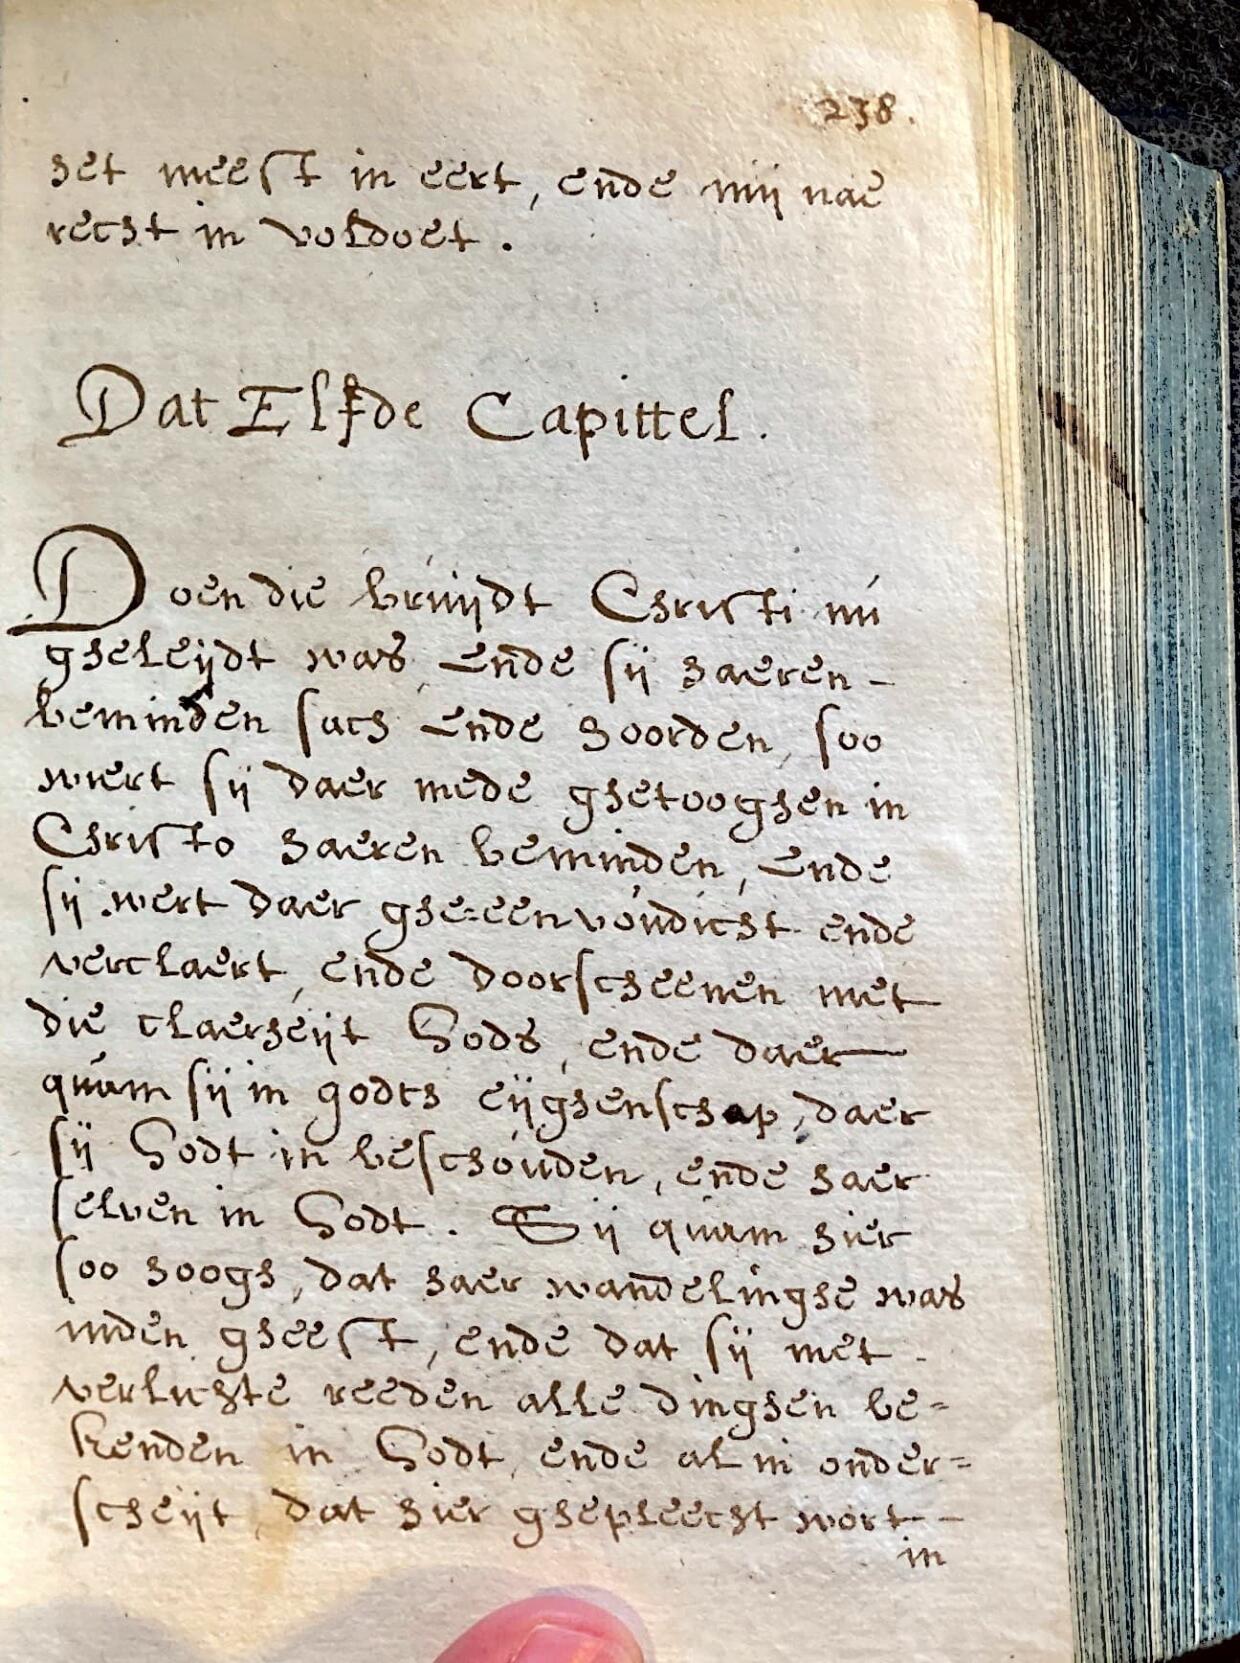 238.
het meest in eert, ende mij nae
recht in voldoet.
Dat Elfde Capittel.
Doen die bruijdt Christi nú
gheleijdt was, ende sij haeren-
beminden sach ende hoorden, soo
wiert sij daer mede ghetooghen in
Christo haeren beminden, ende
sij wert daer ghe=eenvoúdicht ende
verclaert, ende doorscheenen met
die claerheijt Gods, ende daer
quam sij in godts eijghenschap, daer
sij Godt in beschoúden, ende haer
selven in Godt. Sij quam hier
soo hoogh, dat haer wandelinghe was
inden gheest, ende dat sij met
verlichte reeden alle dinghen be=
kenden in Godt, ende al in onder=
scheijt, dat hier ghepleecht wort-
in